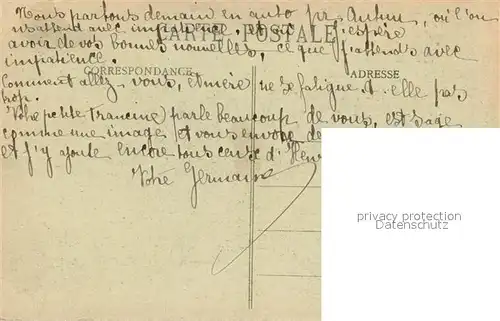 Nous partons demain en auto pr. Autun, où l'on
n/s attend avec impatience. J'espère
CARTE POSTALE
avoir de vos bonnes nouvelles, ce que j'attends avec
impatience.
CORRESPONDANCE
ADRESSE
Comment allez vous, et mère ne se fatigue t. elle pas
trop.
Vtre petite Francine parle beaucoup de vous, est sage
comme une image, et vous envoie de
et j'y ajoute encore tous ceux d'Hen
Vtre Germaine
privacy protection
Datenschutz